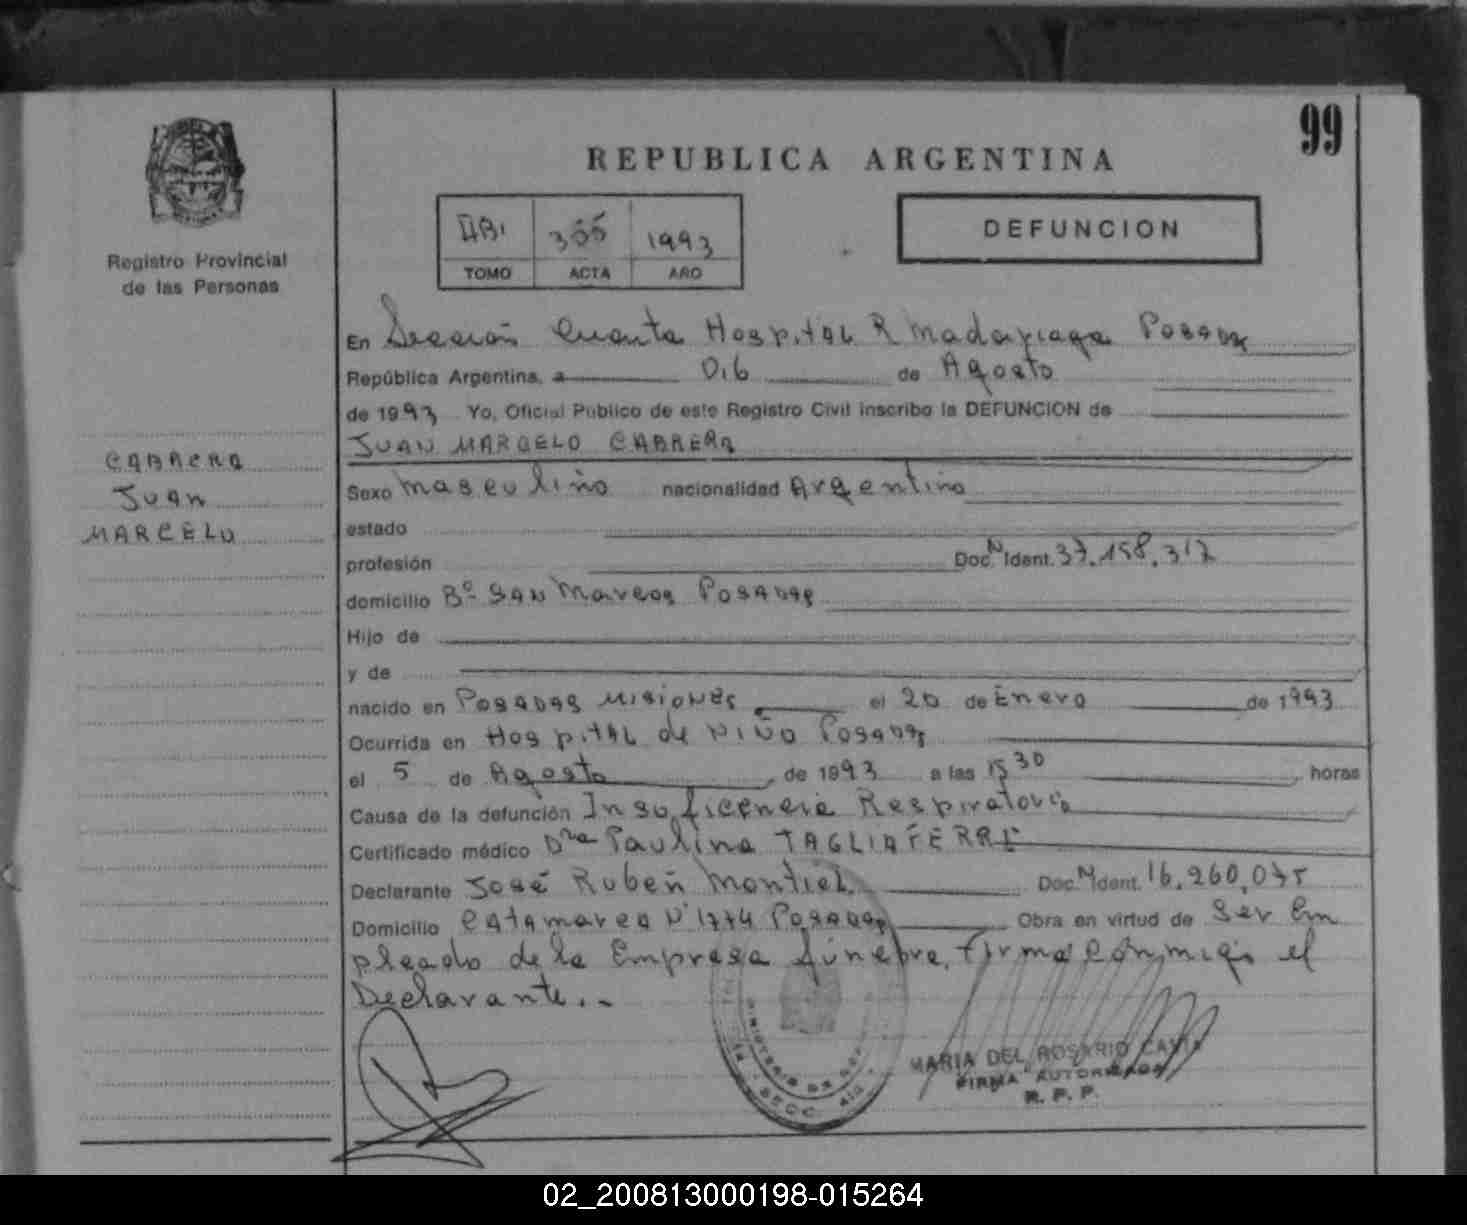 99
REPUBLICA ARGENTINA
1993
TOMO ACTA AÑO
DEFUNCION
Registro Provincial
de las Personas
CABRERA
JUAN
MARCELO
En Sección Cuarta Hospital R Madariaga Posadas
República Argentina, a 06 de Agosto
de 1993 Yo, Oficial Público de este Registro Civil inscribo la DEFUNCION de
JUAN MARCELO CABRERA
Sexo masculino nacionalidad Argentino
estado
profesión Doc. N Ident. 37.158.317
domicilio Bº SAN Marcos Posadas
Hijo de
y de
nacido en Posadas Misiones el 20 de Enero de 1993
Ocurrida en Hospital de Niño Posadas
el 5 de Agosto de 1993 a las 15 30 horas
Causa de la defunción Insuficencia Respiratoria
Certificado médico Dra Paulina TAGLIAFERRI
Declarante José Rubén Montiel Doc. N Ident. 16.260.075
Domicilio Catamarca Nº 1774 Posadas Obra en virtud de Ser Em
pleado de la Empresa fúnebre, firma conmigo el
Declarante..
MARIA DEL ROSARIO CAVIA
FIRMA AUTORIZADA
R. P. P.
MINISTERIO DE
SECC. 4ta
02_200813000198-015264